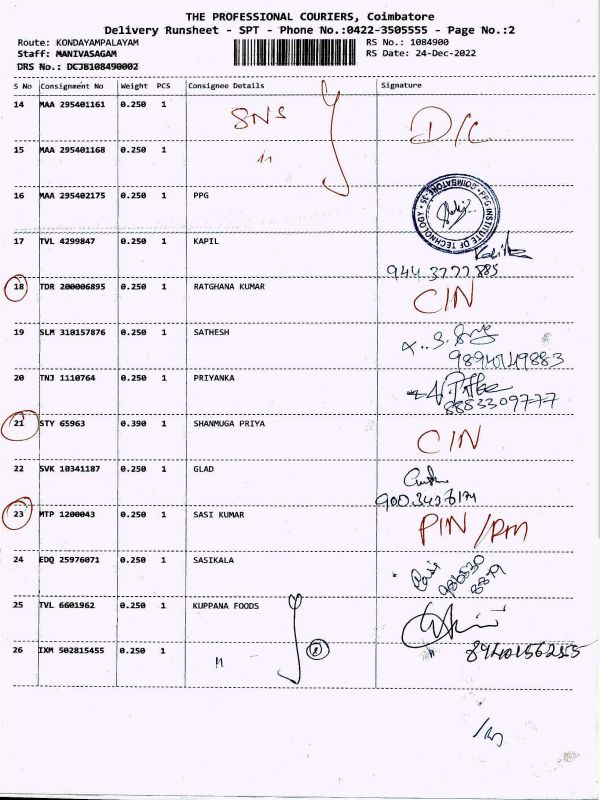 THE PROFESSIONAL COURIERS, Coimbatore
Delivery Runsheet - SPT - Phone No.:0422-3505555 - Page No.:2
Route: KONDAYAMPALAYAM RS No.: 1084900
Staff: MANIVASAGAM RS Date: 24-Dec-2022
DRS No.: DCJB108490002
S No Consignment No Weight PCS Consignee Details Signature
14 MAA 295401161 0.250 1 SNS D/C
15 MAA 295401168 0.250 1 11
16 MAA 295402175 0.250 1 PPG
PPG INSTITUTE OF TECHNOLOGY * COIMBATORE-35 *
17 TVL 4299847 0.250 1 KAPIL
9443777885
18 TDR 200006895 0.250 1 RATGHANA KUMAR CIN
19 SLM 310157876 0.250 1 SATHESH
9894049883
20 TNJ 1110764 0.250 1 PRIYANKA
8883309777
21 STY 65963 0.390 1 SHANMUGA PRIYA CIN
22 SVK 10341187 0.250 1 GLAD
23 MTP 1200043 0.250 1 SASI KUMAR PIN/PM
24 EDQ 25976071 0.250 1 SASIKALA
25 TVL 6601962 0.250 1 KUPPANA FOODS
26 IXM 502815455 0.250 1 11 2